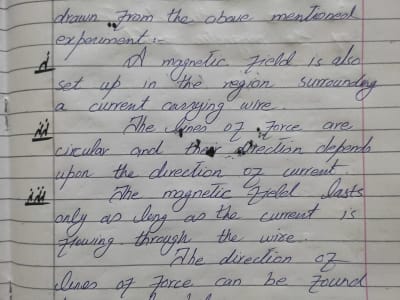 drawn from the above mentioned
experiment:-
i A magnetic field is also
set up in the region surrounding
a current carrying wire.
ii The lines of force are
circular and their direction depends
upon the direction of current.
iii The magnetic field lasts
only as long as the current is
flowing through the wire.
The direction of
lines of force can be found